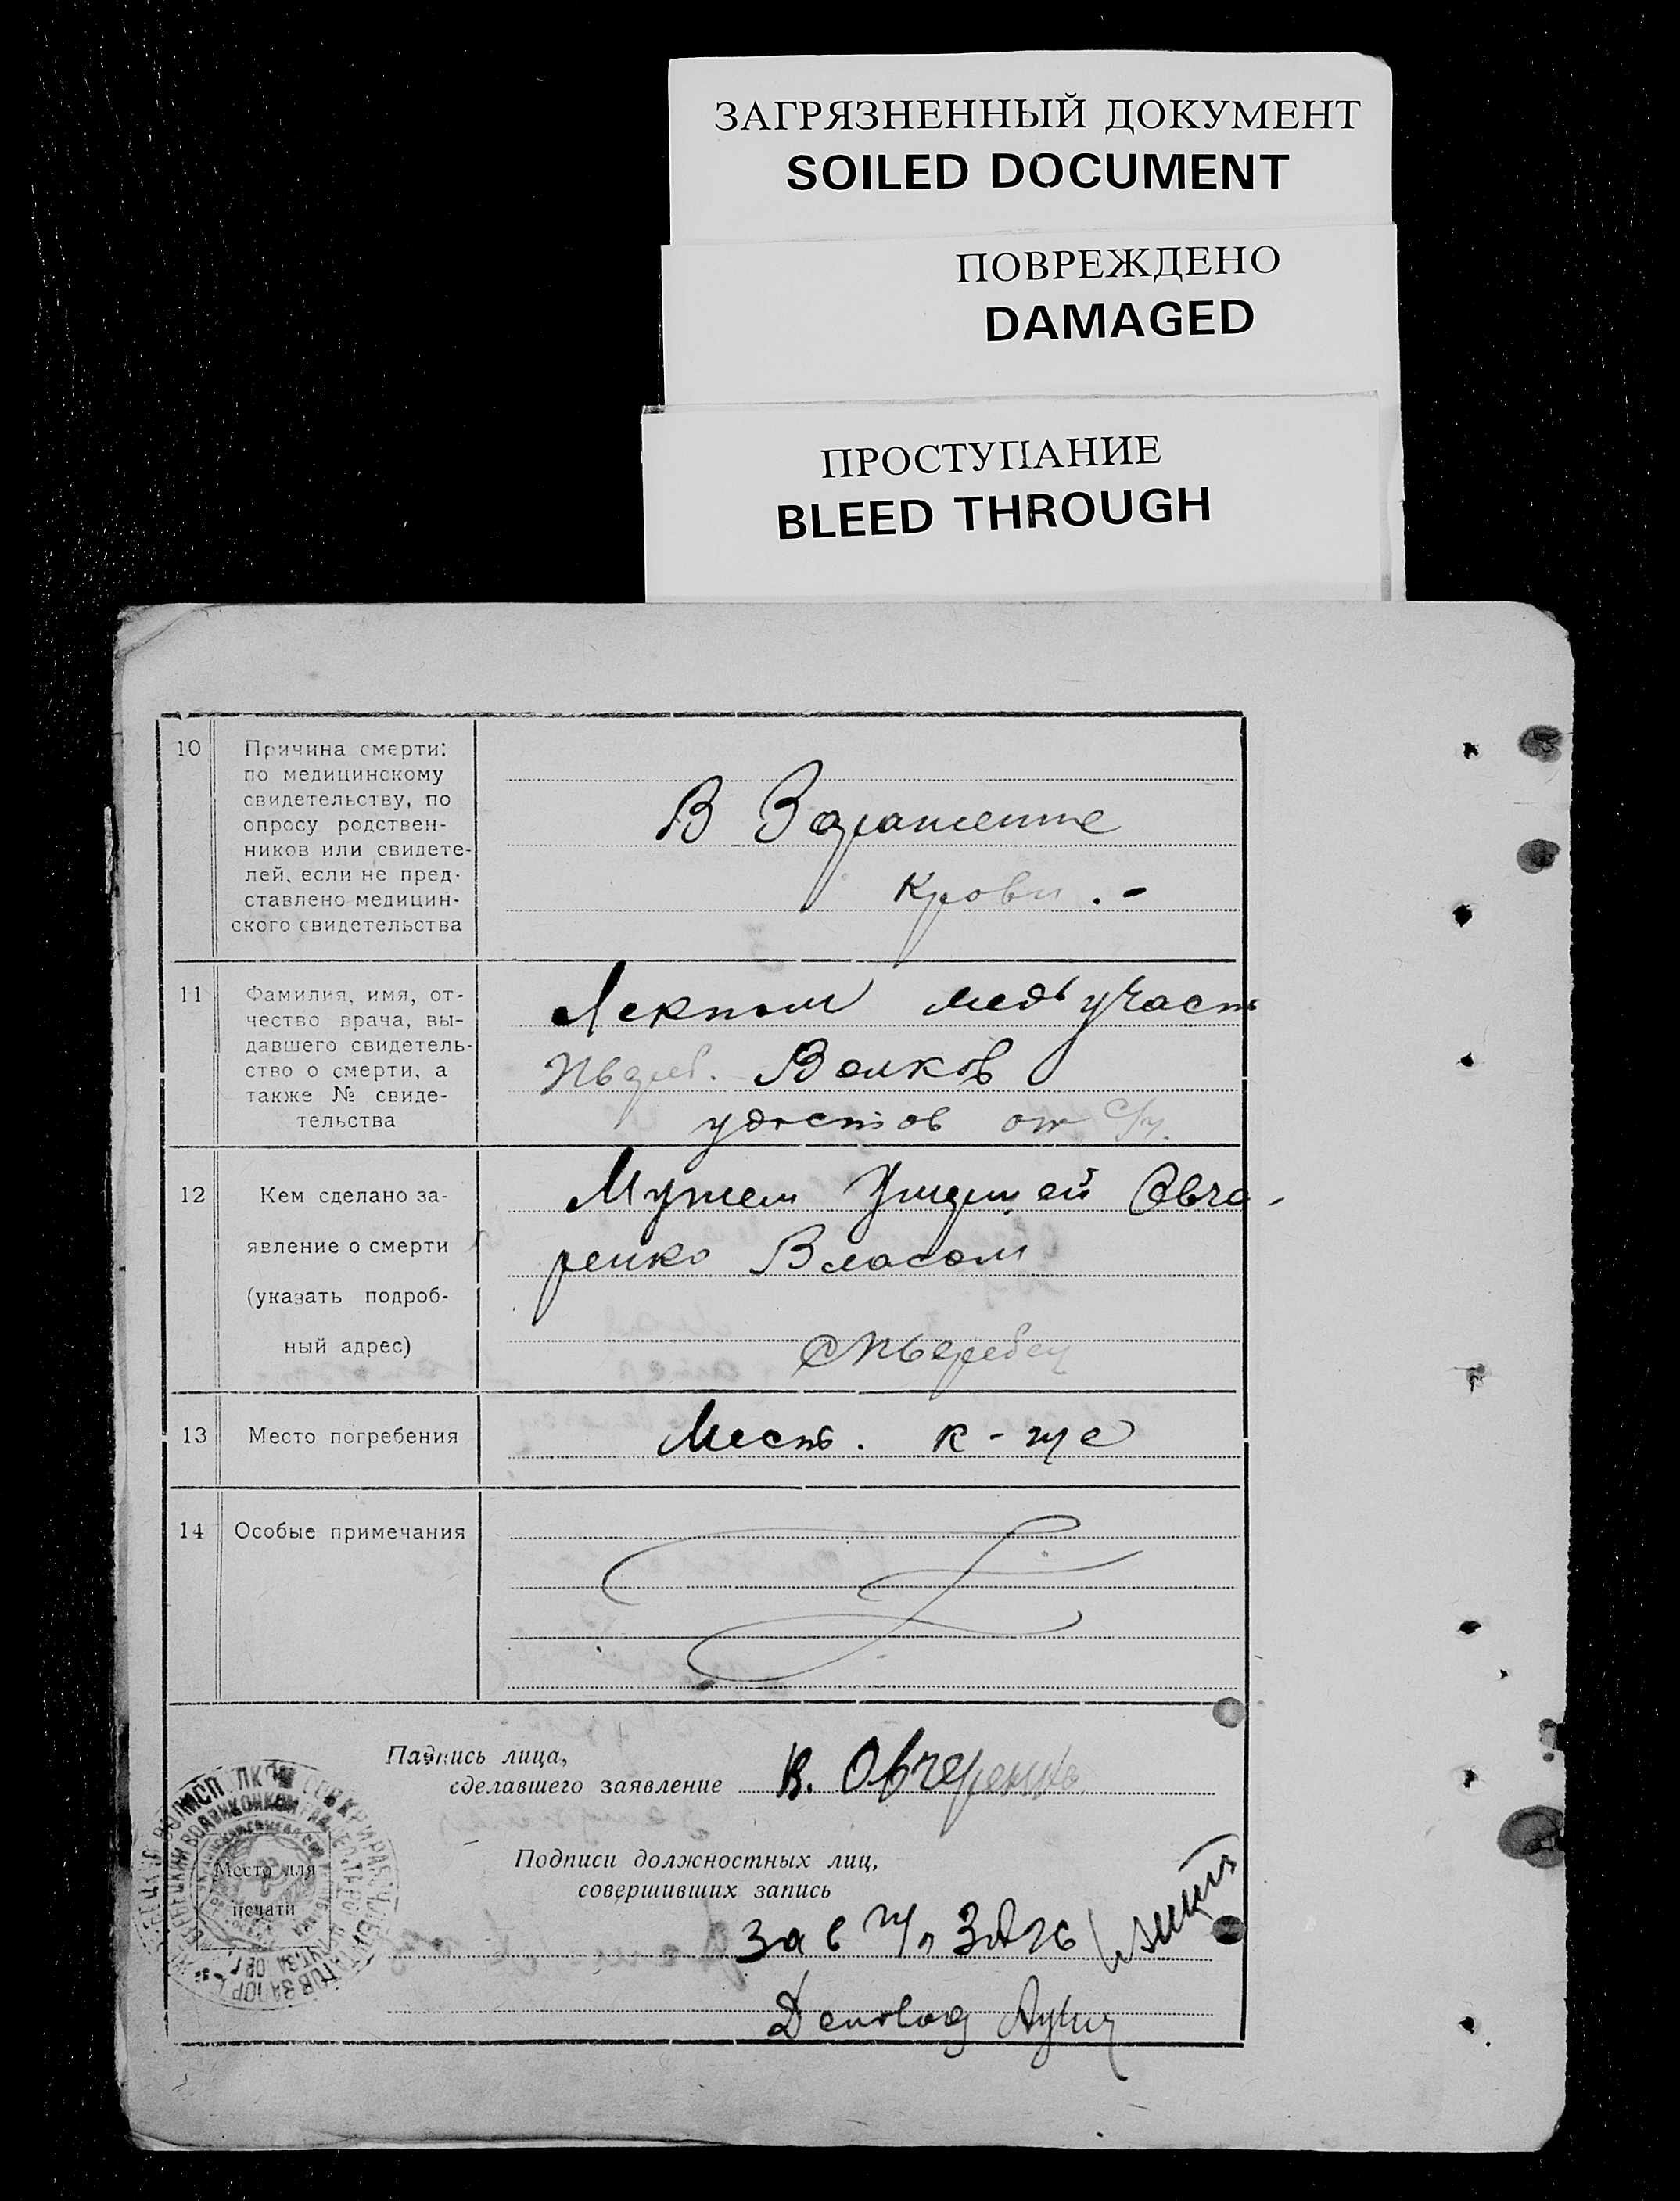 ЗАГРЯЗНЕННЫЙ ДОКУМЕНТ
SOILED DOCUMENT
ПОВРЕЖДЕНО
DAMAGED
ПРОСТУПАНИЕ
BLEED THROUGH
10
Причина смерти:
по медицинскому
свидетельству, по
опросу родствен-
ников или свидете-
лей, если не пред-
ставлено медицин-
ского свидетельства
В Заражение
Крови . -
11
Фамилия, имя, от-
чество врача, вы-
давшего свидетель-
ство о смерти, а
также № свиде-
тельства
Лекпом медучаст
Волков
удостов от с/г.
12
Кем сделано за-
явление о смерти
(указать подроб-
ный адрес)
Мужем Умершей Овча-
ренко Власом
13
Место погребения
Мест. к-ще
14
Особые примечания
Падпись лица,
сделавшего заявление
В. Овчеренко
Подписи должностных лиц,
совершивших запись
Место для
печати
Зав ЗАГС
Деловод